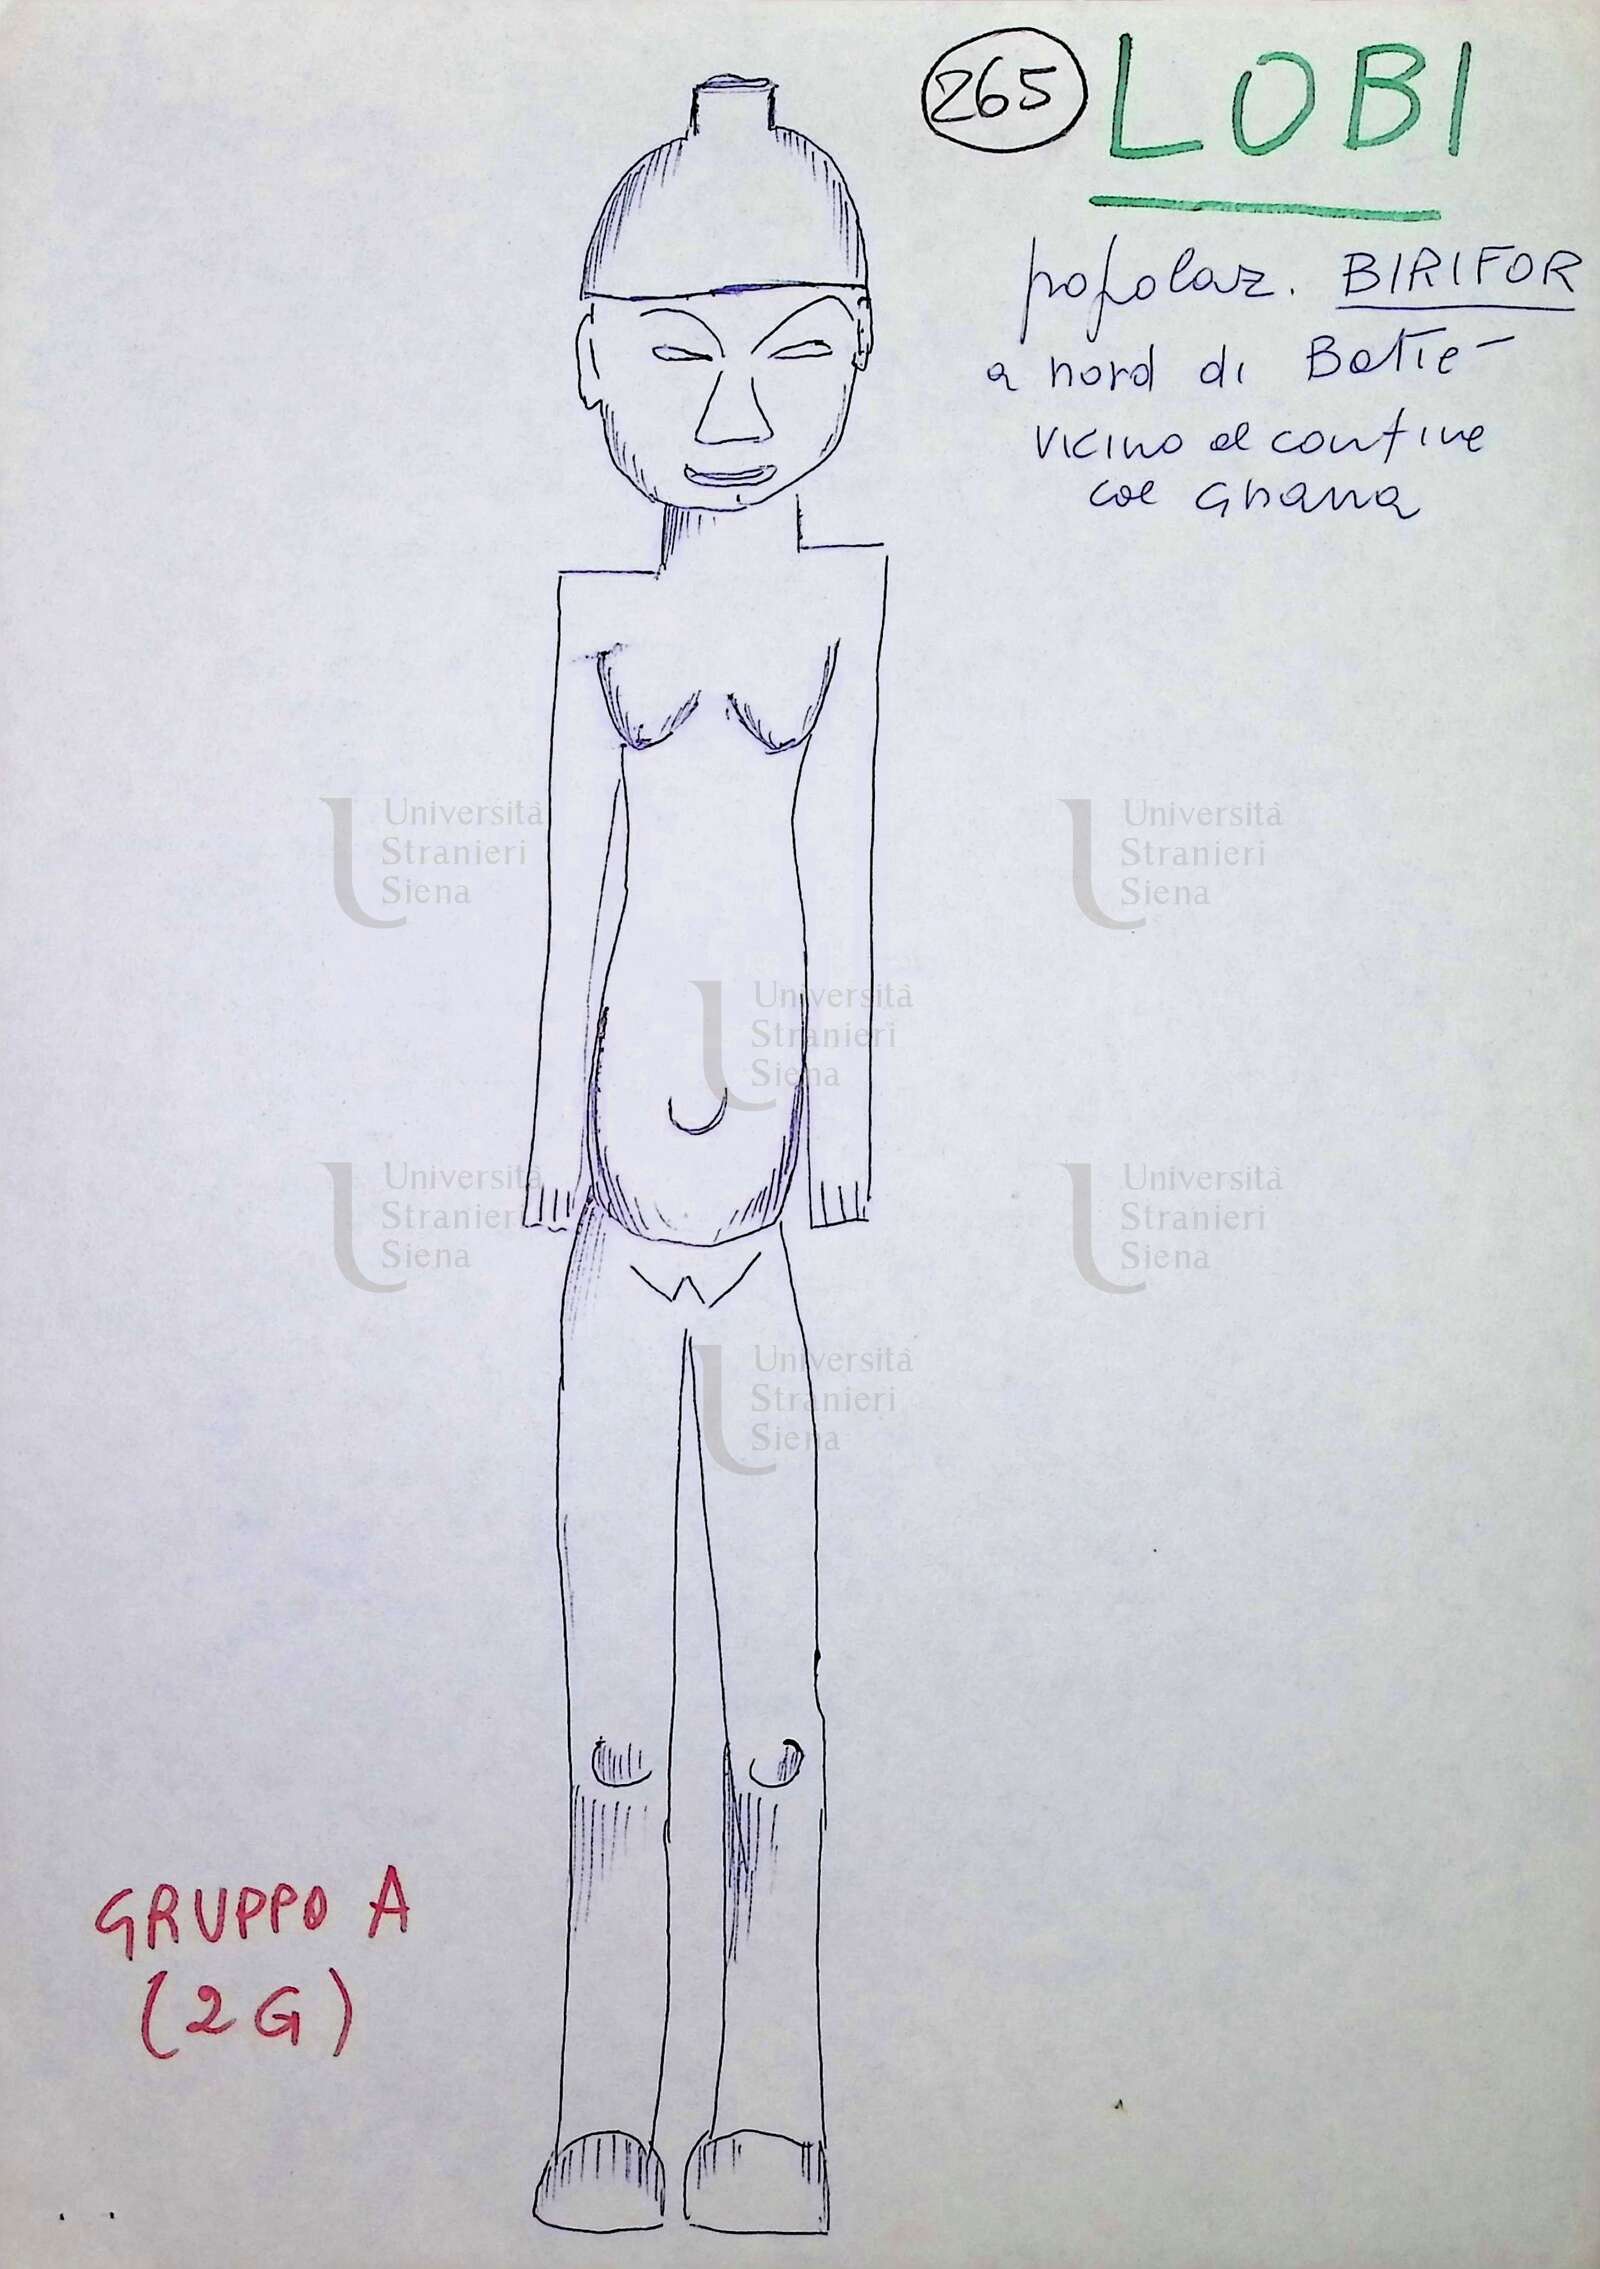 265 LOBI
popolaz. BIRIFOR
a nord di Batie
vicino al confine
col Ghana
Università
Stranieri
Siena
Università
Stranieri
Siena
Università
Stranieri
Siena
Università
Stranieri
Siena
Università
Stranieri
Siena
Università
Stranieri
Siena
GRUPPO A
(2G)